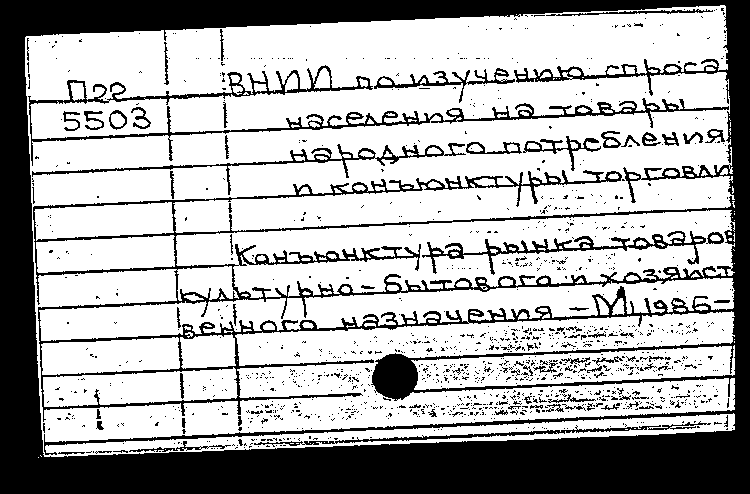 Пге ВНИИ по изучению спроса
5503 населения на товары
народного потребления
и конъюнктуры торговли
Конъюнктура рынка товаров
культурно-бытового и хозяйст
венного назначения - М., 1985-